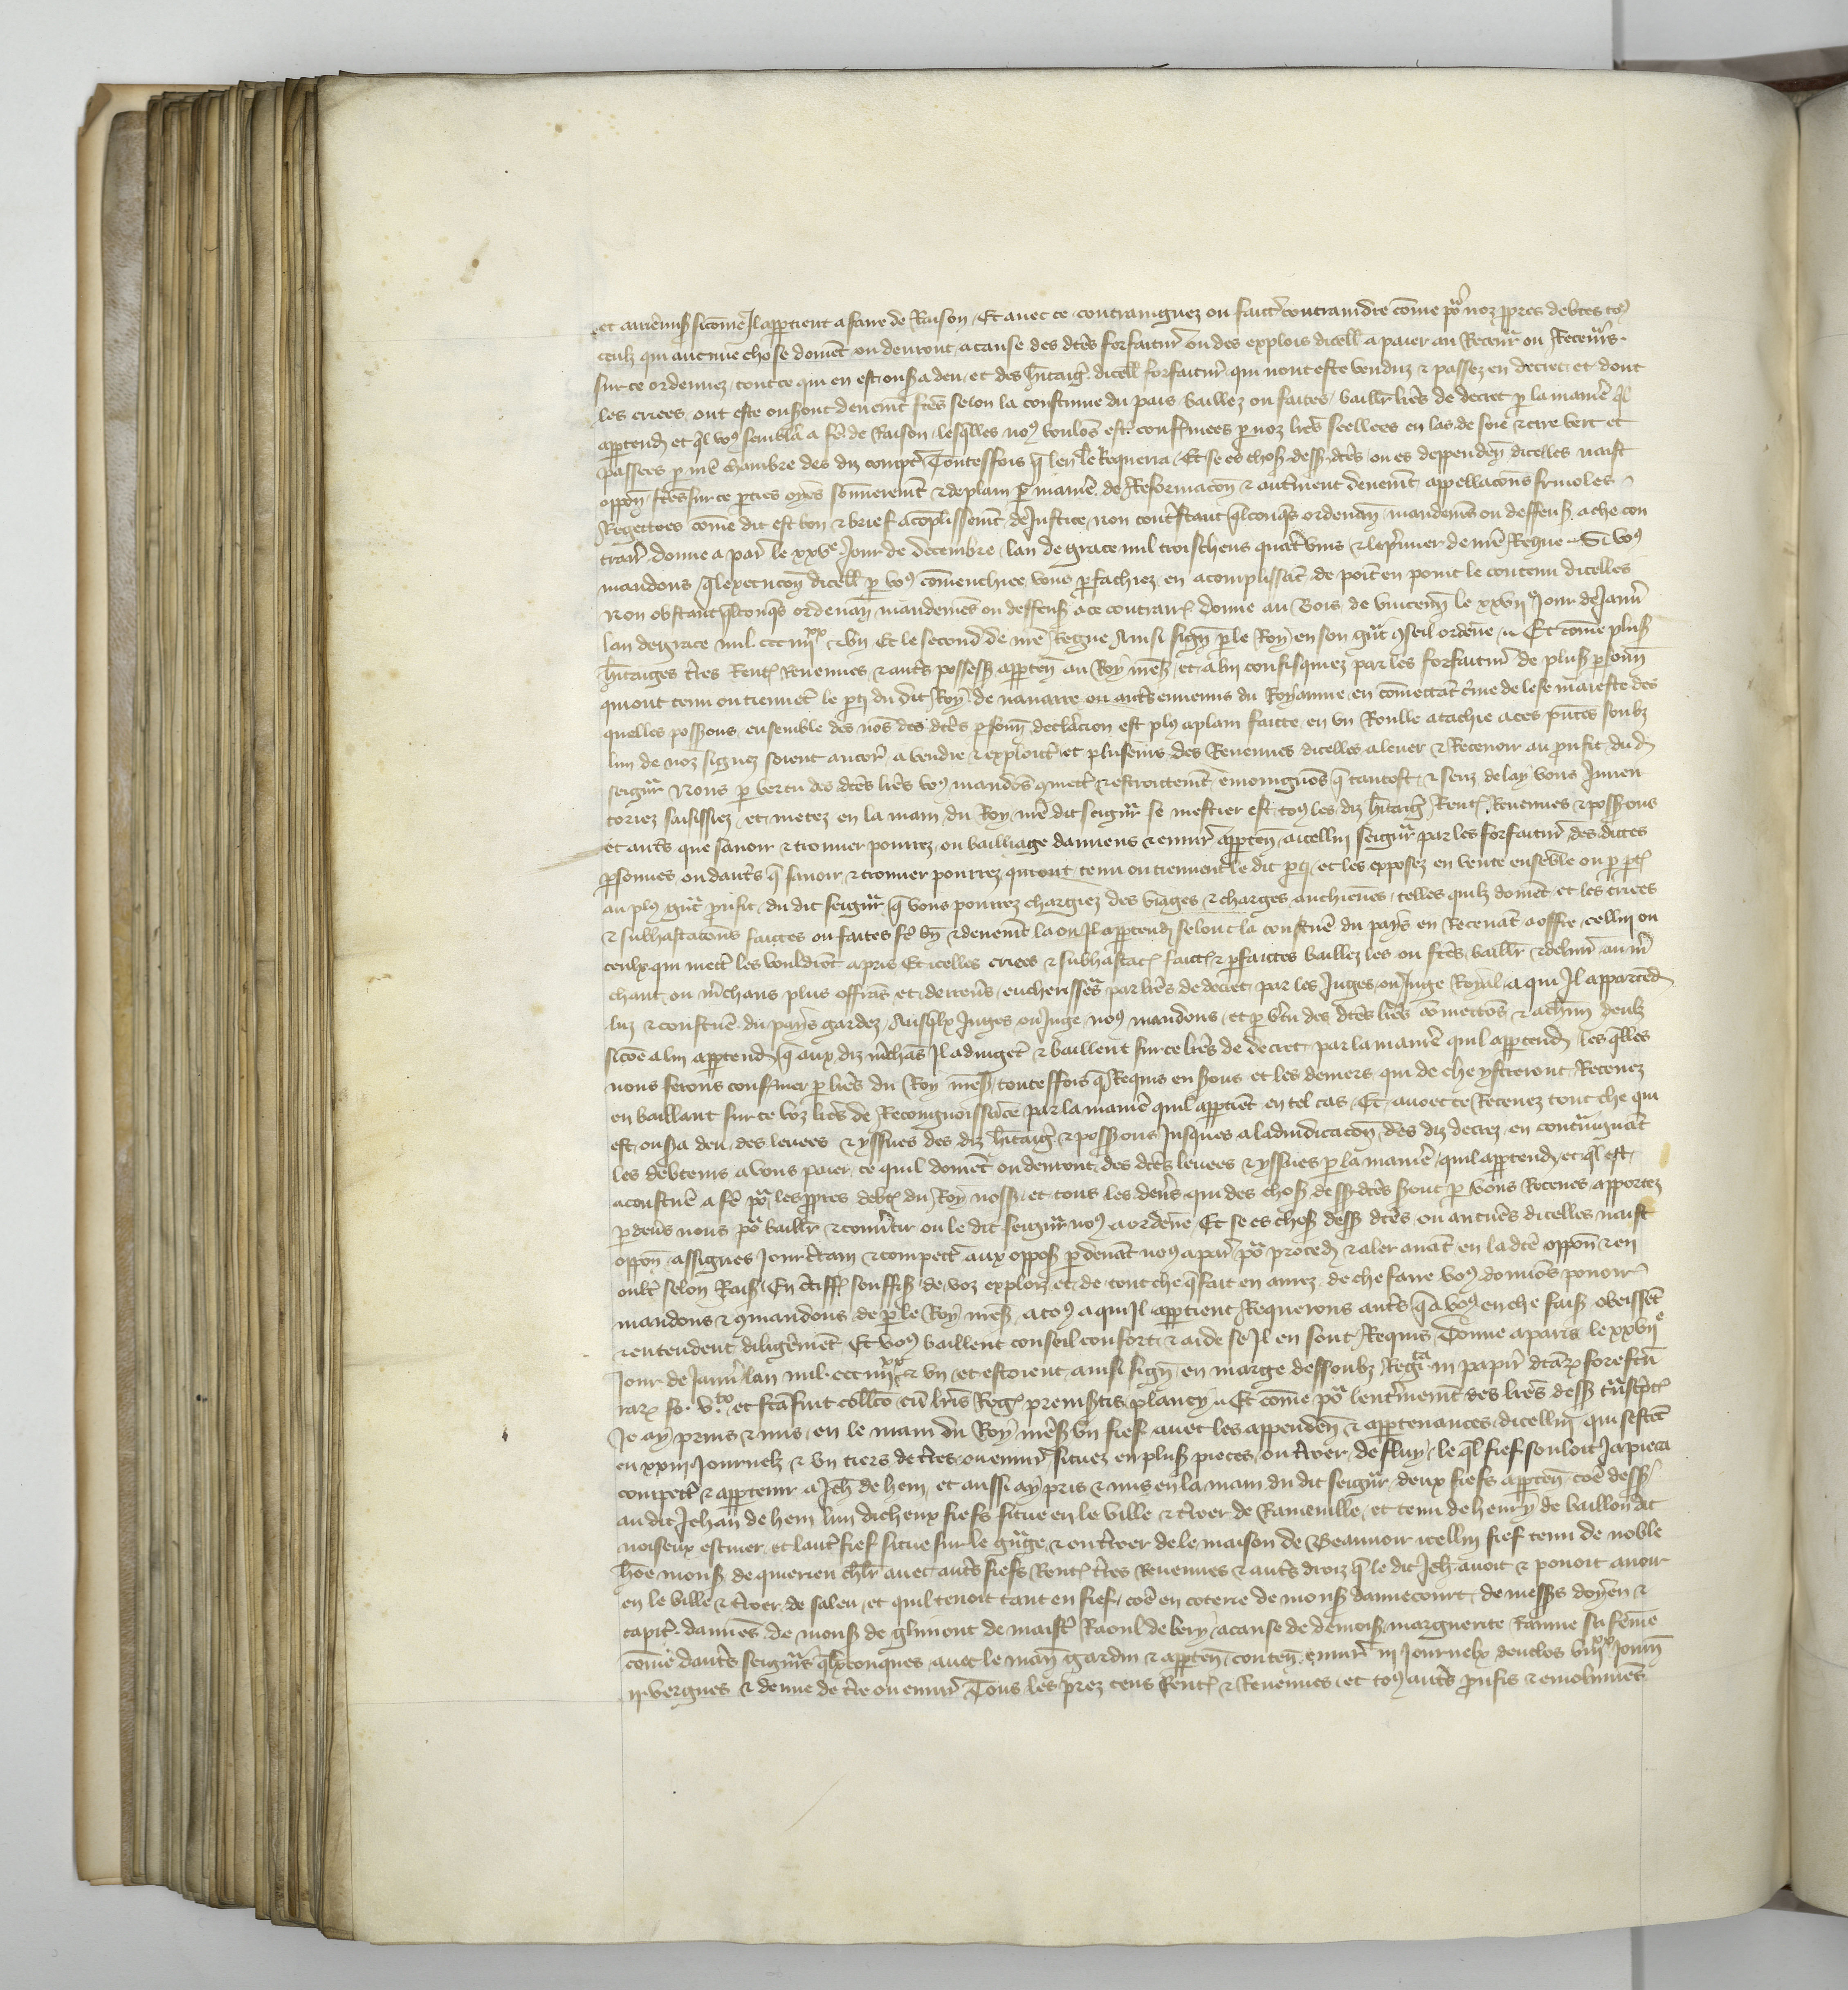 et autrems sicome Il appartient a faire de Raison Et avec ce contraingnez ou faictes contraindre come por noz ppres debtes tos
ceulx qui aucune chose doivent ou devront a cause des dctes forfaitures ou des explois dicell a paier au Receur ou Receurs
sur ce ordenez tout ce qui en est ou sa deu et des hitaig dicell forfaitur qui nont este venduz & passez en decret et dont
les criees ont este ou sont deuemt ftes selon la coustume du pais baillez ou faites baillr lres de decret p la manie ql
apptend et ql vos semblera a fe de Raison lesqlles nos voulos estre confmees p noz lres seellees en las de soie & cire vert et
passees p nre chambre des diz comptes Toutesfois q len le Requerra Et se es chos dess dctes ou es deppenden dicelles naist
oppon ftes sur ce pties oyes sommerement & de plain p manie de Reformacon & autrement deuemt appellacons frivoles
Regettees come dit est bon & brief acomplissemt de Justice non contrestant qlconqs ordenan mandemens ou deffens a che con
traires donne a par le xxve Jour de decembre lan de grace mil troischens quatrevins & le pmier de nre Regne Si vos
mandons q lexecucon dicell p vos commenchiee vous pfachiez en acomplissant de point en point le contenu dicelles
Non obstant qlconqs ordenan mandemens ou deffens a ce contrair donne au Bois de vincenn le xxvije Jour de Janv
lan de grace mil ccc iiijxx & un Et le second de nre Regne Ainsi sign p le Roy en son gnt 9seil ordene Et come plus
hitaiges tres Rent Revenues & auts possess apptien au Roy nres et a lui confisquiez par les forfaitures de plus psonn
qui ont tenu ou tiennent le pti du dit Roy de navarre ou auts ennemis du Royaume en comettant crime de lese maieste des
quelles possions ensemble des nos des dctes psonn declaracion est plus a plain faicte en un Roulle atachie a ces pntes soubz
lun de noz signez soient ancor a vendre & exploitier et pluseurs des Revenues dicelles a lever & Recevoir au prufit dud
seignr Nous p vertu des dctes lres vos mandos 9mett & estroictemt enioingnos q tantost & senz delay vous Inven
toriez saisissiez et metez en la main du Roy nre dit seignr se mestier est tos les diz hitaig Rent Revenues & possions
et auts que savoir & trouver pourrez ou bailliage damiens & envir apptien a icellui seignr par les forfaitur des dictes
psonnes ou dauts q savoir & trouver pourrez qui ont tenu ou tiennent le dit pti et les exposez en vente ensemble ou p pt
au pls gnt proufit du dit seignr q vous pourrez chargiez des viages & charges anchiennes telles quilz doivent et les criees
& subhastacons faictes ou faites fe bn & deuemt la ou Il apptend selonc la coustume du pays en Recevant a offre cellui ou
ceulx qui mettre les vouldront a pris Et icelles criees & subhastac faict & pfaictes baillez les ou ftes baillr & delivr au m
chant ou mchans plus offrans et derreniers encherisseurs par lres de decret par les Juges ou Juge Royal a qui Il appartend
luz & coustume du pays gardez Ausqlx Juges ou Juge nos mandons et p vtu des dctes lres comettos & a chun deulx
sicome a lui apptend q aux diz mchas Il adiugent & baillent sur ce lres de decret par la maniere quil apptend lesqlles
nous ferons confmer p lres du Roy nres toutesfois q Requis en serons et les deniers qui de che ystreront Recevez
en baillant sur ce voz lres de Recongnoissance par la maniere quil apptient en tel cas Et avoec ce Recevez tout che qui
est ou sa deu des levees & yssues des diz hitaig & possions Jusques a ladiudicacon des diz decrez en contraignant
les debteurs a vous paier ce quil doivent ou devront des dctes levees & yssues p la maniere quil apptend et ql est
acoustume a fe por les ppres debt du Roy noss et tous les deniers qui des chos dessdctes seront p vous Receues apportez
p devers nous por baillr & convertir ou le dit seignr nos a ordene Et se es chos dess dctes ou aucunes dicelles naist
oppon assignes Jour ctain & compectent aux oppos p devant nos a par por proced & aler avant en la dcte oppon & en
oultre selon Rais En ctiff souffis de voz exploiz et de tout che q fait en arez de che faire vos donnons povoir
mandons & 9mandons de p le Roy nres a tos a qui Il apptient Requerons auts q a vos en che fais obeissent
& entendent diligemment Et vos baillent conseil confort & aide se Il en sont Requis Donne a paris le xxvije
Jour de Janv lan mil ccc iiijxx & un et estoient ainsi sign en marge dessoubz Regta in papir dtarx forefctu
rarx fo. vto et scafuit collco cu lris Reg premisctis plancy Et come por lentinemt des lres dess tnscptes
Je ay prins & mis en le main du Roy nres un fief avec les appenden & apptenances dicellui qui sestent
en xxiij Journelz & un tiers de tres ou envir situez en plus pieces ou teroer de fluy le ql fief souloit Ja pieca
compecter & apptenir a Jeh de hem et aussi ay pris & mis en la main du dit seignr deux fiefs apptien coe dess
au dit Jehan de hem lun dicheux fiefs situe en le ville & troer de Raineville et tenu de henry de baillon dit
noiseux escuier et lautre fief situe sur le gnge & ou troer de le maison de Beauvoir icellui fief tenu de noble
hoe mons de querrieu chlr avec auts fiefs Rent tres Revenues & auts droiz q le dit Jeh avoit & povoit avoir
en le ville & troer de saleu et quil tenoit tant en fief coe en coterie de mons dannecourt de messs doyen &
capitre damiens de mons de glimont de maistre Raoul de bery a cause de demois marguerite Rainne sa feme
come dauts seignrs qlxconques avec le man gardin & apptien conten envir iij Journelx denclos viijxx Journ
ij vergues & demie de tre ou envir Tous les prez cens Rent & Revenues et tos auts profis & emolumes